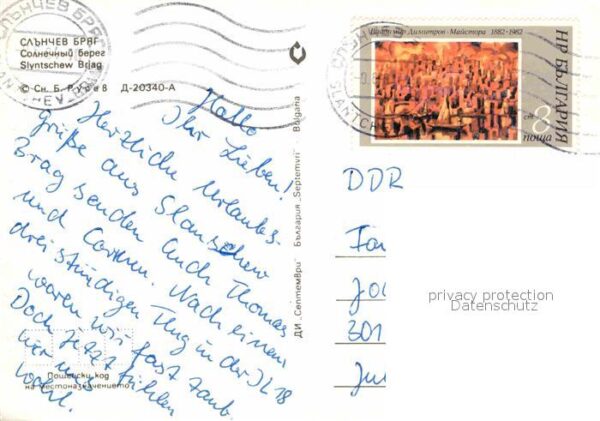 СЛЪНЧЕВ БРЯГ
СЛЪНЧЕВ БРЯГ
Солнечный берег
Slyntschew Brjag
© Сн. Б. Русев Д-20340-А
Hallo
Ihr Lieben!
Herzliche Urlaubs-
grüße aus Slantschew
Brag senden Euch Thomas
und Carmen. Nach einem
dreistündigen Flug in der JL 18
waren wir fast taub.
Doch jetzt fühlen
wir uns
wohl.
Пощенски код
на местоназначението
ДИ „Септември" България „Septemvri" Bolgaria
Владимир Димитров - Майстора 1882-1982
НР БЪЛГАРИЯ
ст 8
поща
СЛЪНЧЕВ
DDR
Fa
Jo
301
Ju
privacy protection
Datenschutz